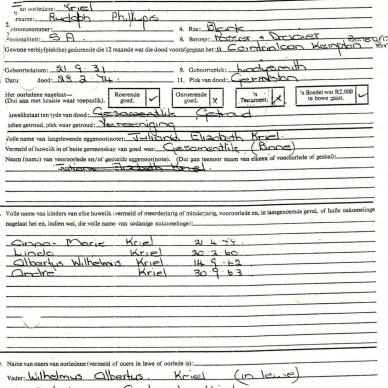 Kriel
Rudolph Phillipis
2.
4. Ras: Blank
Nasionaliteit: S A.
6. Beroep:
Gewone verblyfplek(ke) gedurende die 12 maande wat die dood voorafgegaan het:
Geboortedatum: 21 9. 31
9. Geboorteplek: Ladysmith
Datum dood: 11. Plek van dood: Germiston
Het oorledene nagelaat—
(Dui aan met kruise waar toepaslik).
Roerende goed.
Onroerende goed. x
'n Testament. x
'n Boedel wat R2,000 te bowe gaan.
Huweliksstaat ten tyde van dood: Gesamentlik Getroud
Indien getroud, plek waar getroud: Vereeniging
Volle name van langslewende eggenoot(note): Elizabeth Kriel.
Vermeld of huwelik in of buite gemeenskap van goed was: Gesamentlik (Binne)
Naam (name) van vooroorlede en/of geskeide eggenoot(note). (Dui aan teenoor naam van elkeen of vooroorlede of geskei):
Elizabeth Kriel.
Volle name van kinders van elke huwelik (vermeld of meerderjarig of minderjarig, vooroorlede en, in laasgenoemde geval, of hulle nakomelinge
nagelaat het en, indien wel, die volle name van sodanige nakomelinge):
Anna-Marie Kriel 21 4
Linda Kriel 30 2 60
Albertus Wilhelmus Kriel 14 9 62
Andre Kriel 30 9 63
Name van ouers van oorledene (vermeld of ouers in lewe of oorlede is):
Vader: Wilhelmus Albertus Kriel (in lewe)